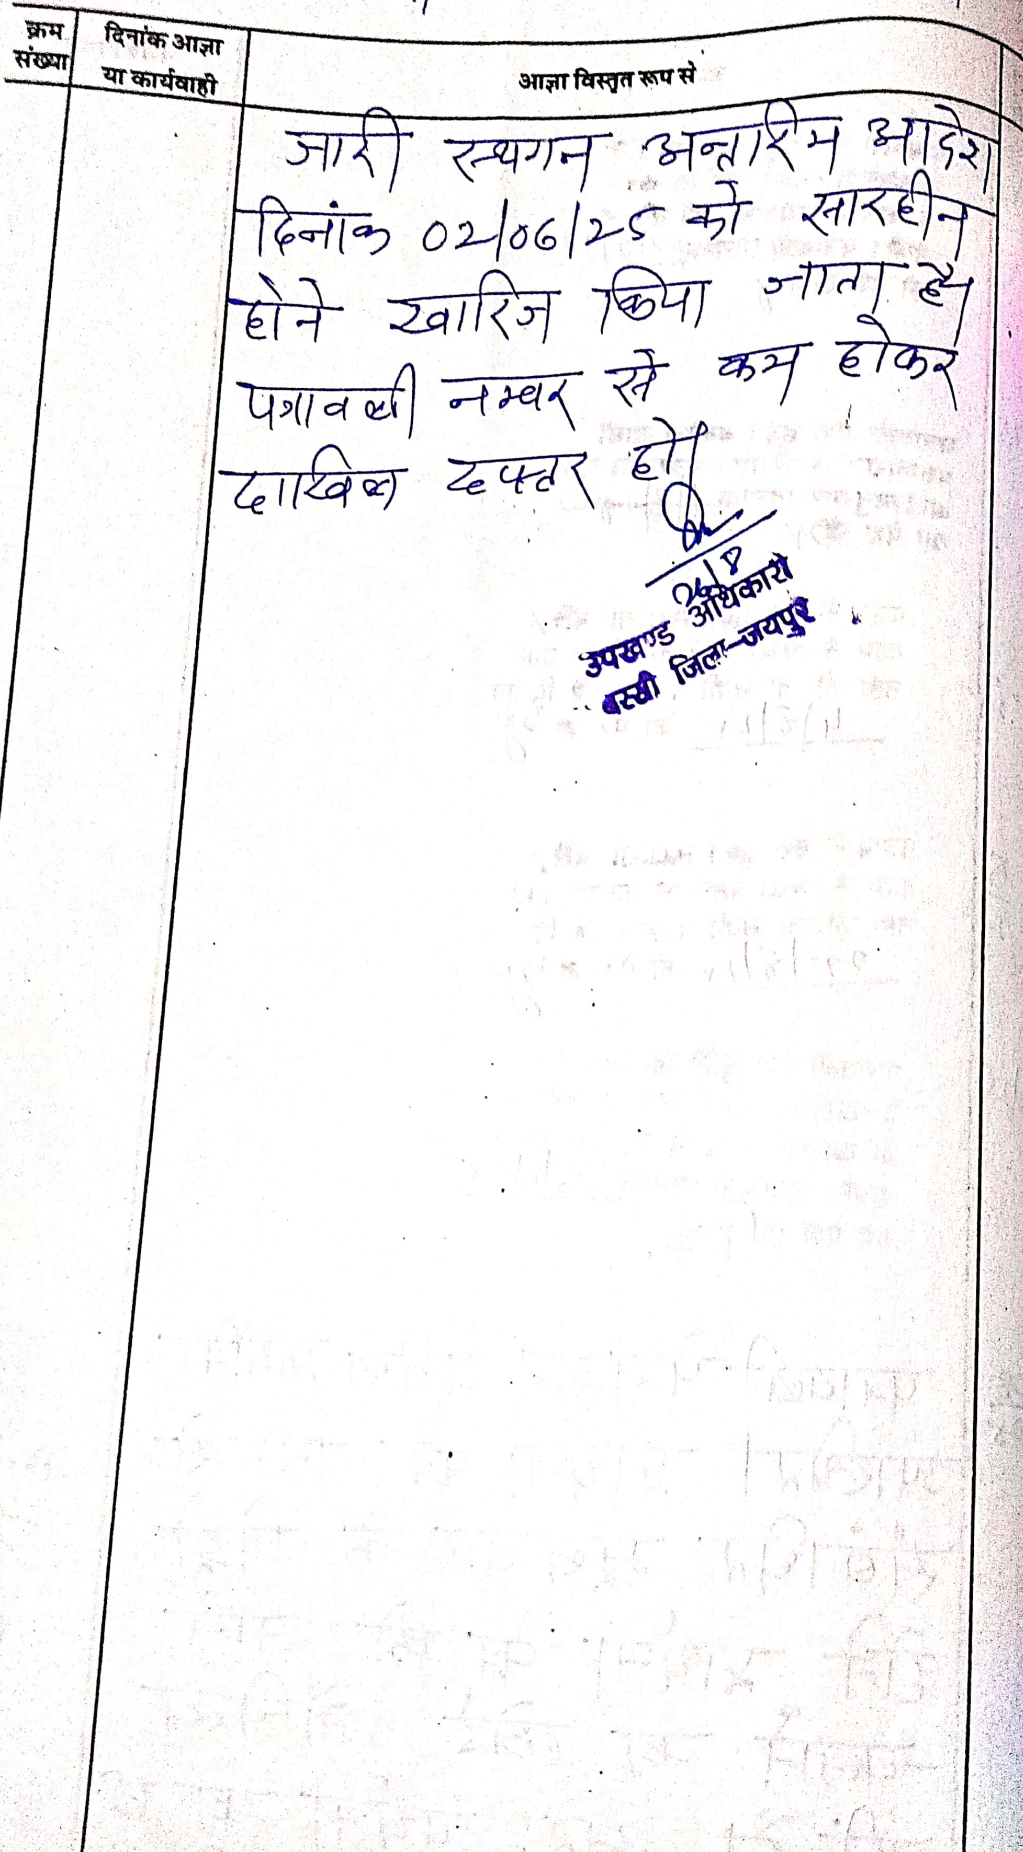 क्रम संख्या
दिनांक आज्ञा या कार्यवाही
आज्ञा विस्तृत रूप से
जारी स्थगन अन्तरिम आदेश
दिनांक 02/06/25 को सारहीन
होने खारिज किया जाता है।
पत्रावली नम्बर से कम होकर
दाखिल दफ्तर हो।
26/8
उपखण्ड अधिकारी
बस्सी जिला-जयपुर